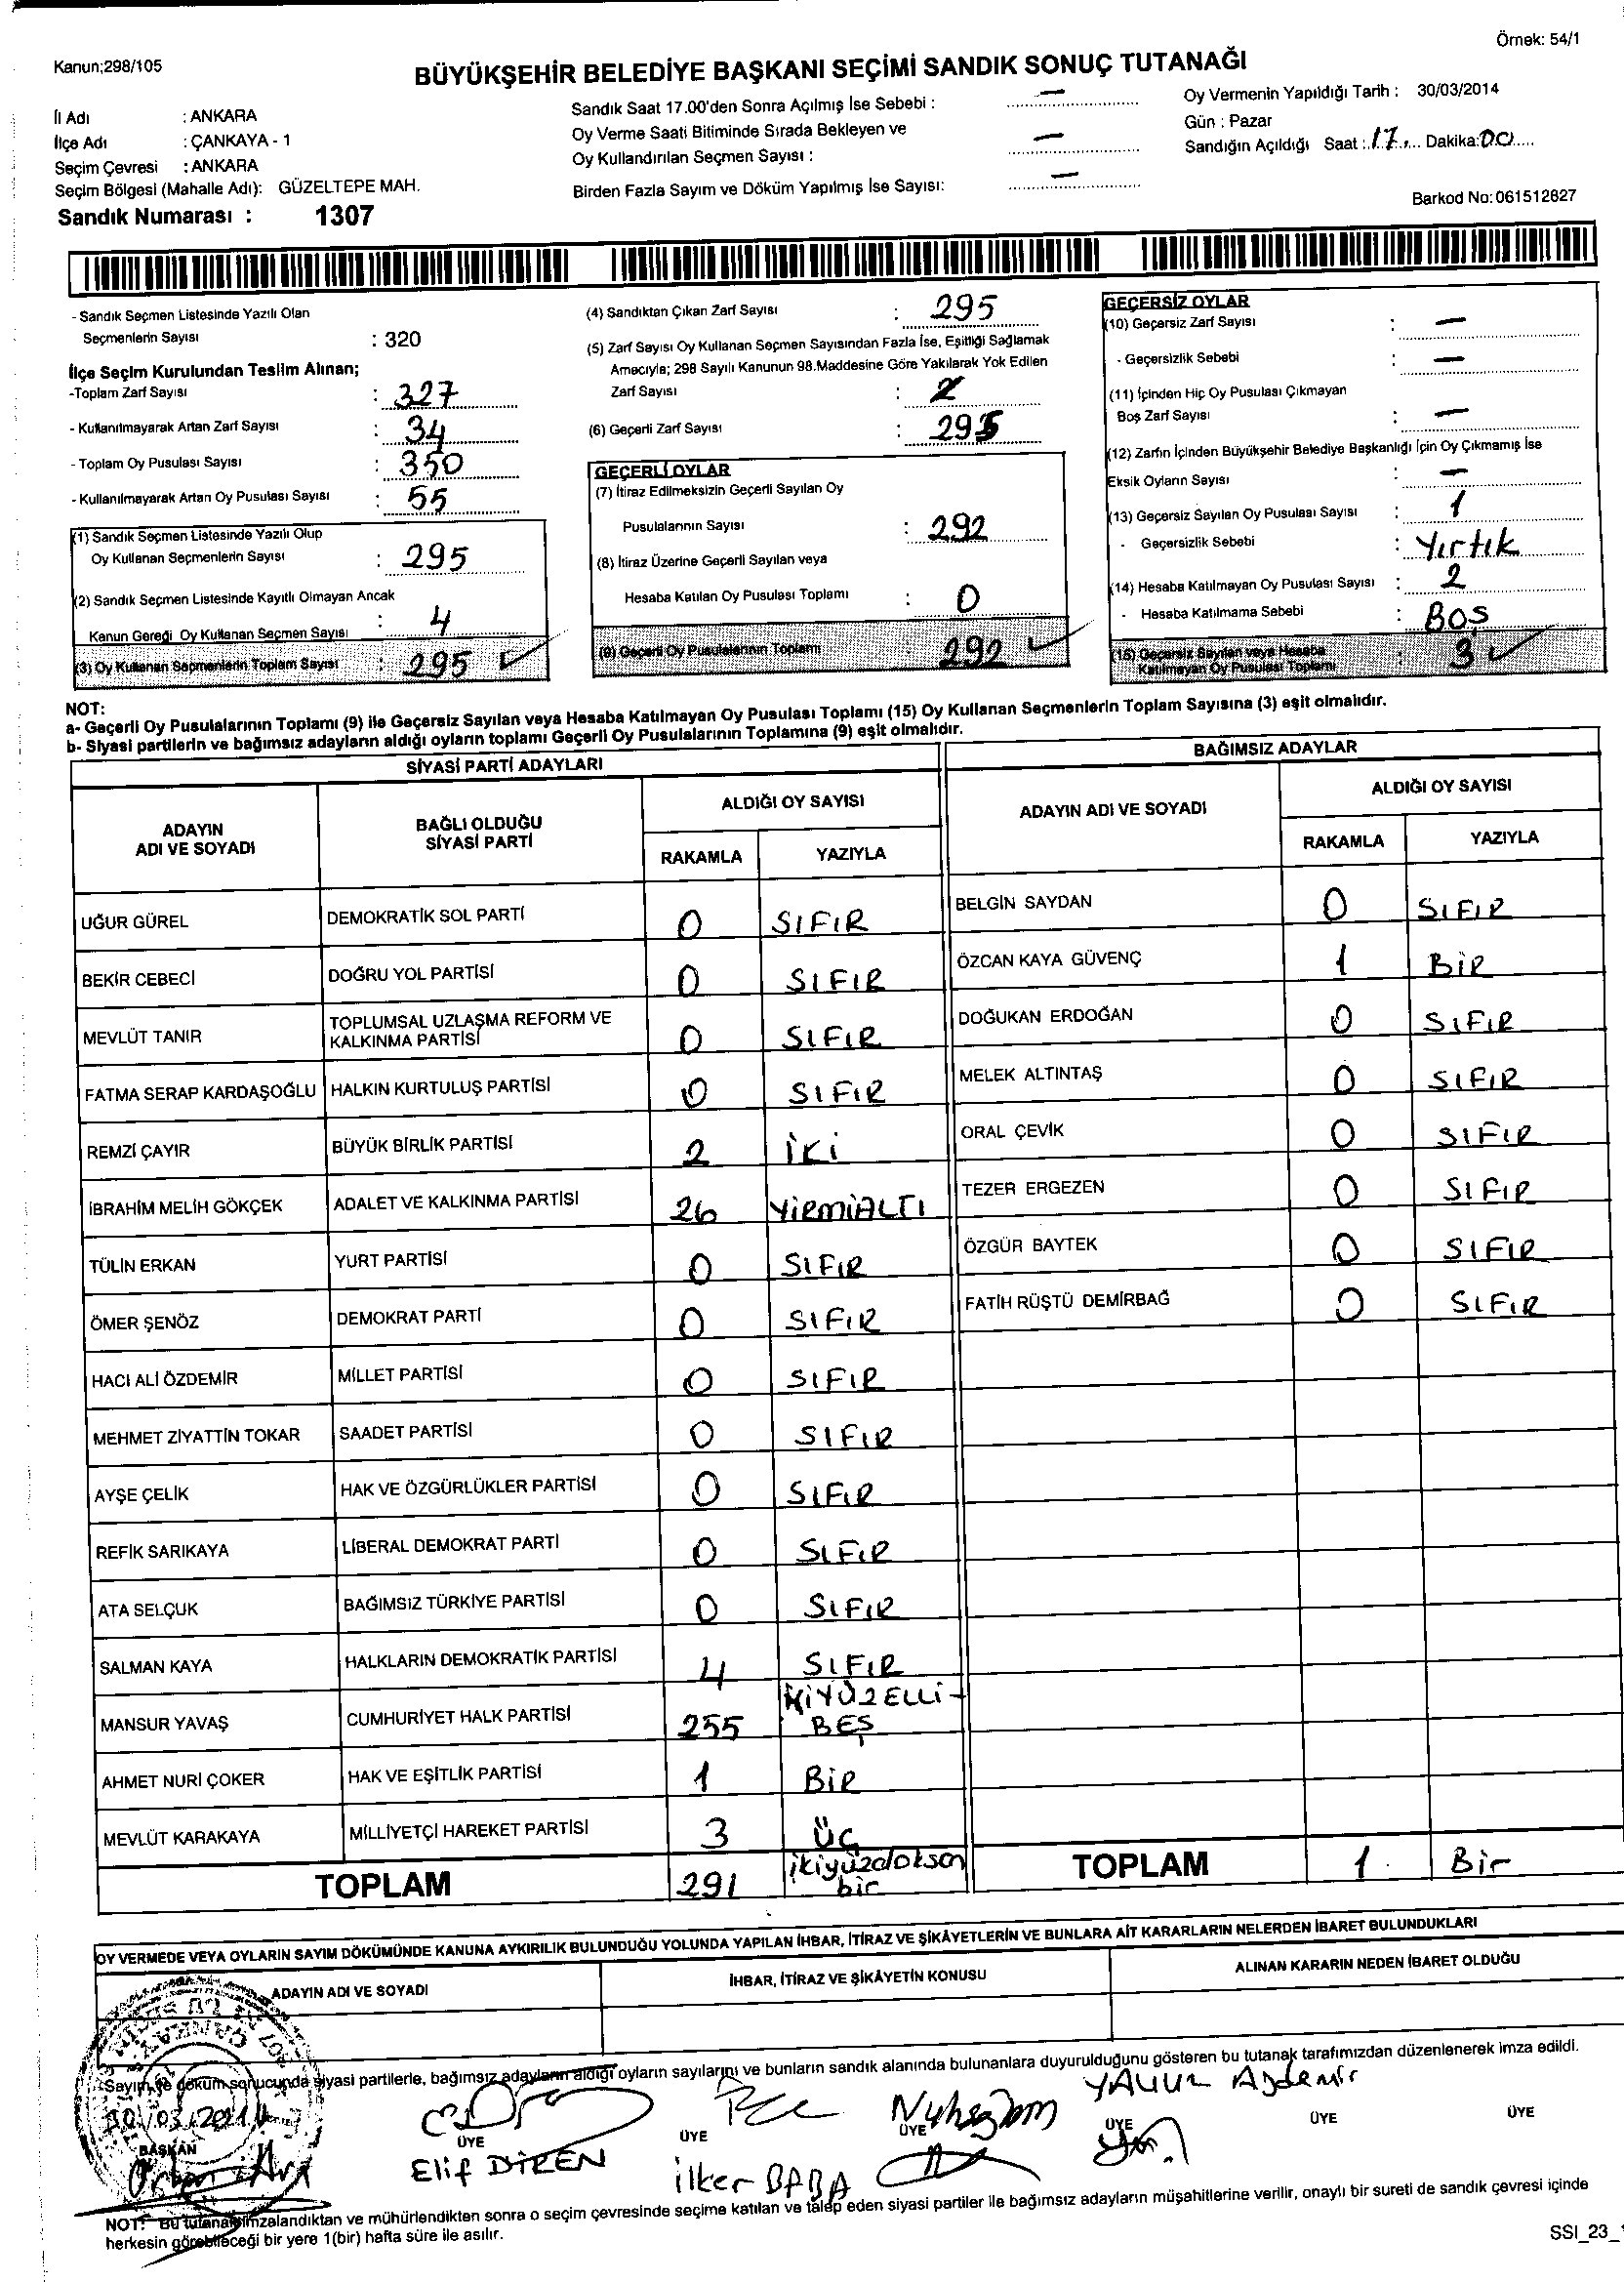 Örnek: 54/1
Kanun;298/105
BÜYÜKŞEHİR BELEDİYE BAŞKANI SEÇİMİ SANDIK SONUÇ TUTANAĞI
İl Adı : ANKARA
İlçe Adı : ÇANKAYA - 1
Seçim Çevresi : ANKARA
Seçim Bölgesi (Mahalle Adı): GÜZELTEPE MAH.
Sandık Numarası : 1307
Sandık Saat 17.00'den Sonra Açılmış İse Sebebi : —
Oy Verme Saati Bitiminde Sırada Bekleyen ve
Oy Kullandırılan Seçmen Sayısı : —
Birden Fazla Sayım ve Döküm Yapılmış İse Sayısı: —
Oy Vermenin Yapıldığı Tarih : 30/03/2014
Gün : Pazar
Sandığın Açıldığı Saat : 17 Dakika: 00
Barkod No: 061512827
- Sandık Seçmen Listesinde Yazılı Olan
Seçmenlerin Sayısı : 320
İlçe Seçim Kurulundan Teslim Alınan;
-Toplam Zarf Sayısı : 327
- Kullanılmayarak Artan Zarf Sayısı : 34
- Toplam Oy Pusulası Sayısı : 350
- Kullanılmayarak Artan Oy Pusulası Sayısı : 55
(1) Sandık Seçmen Listesinde Yazılı Olup
Oy Kullanan Seçmenlerin Sayısı : 295
(2) Sandık Seçmen Listesinde Kayıtlı Olmayan Ancak
Kanun Gereği Oy Kullanan Seçmen Sayısı : 4
(3) Oy Kullanan Seçmenlerin Toplam Sayısı : 295
(4) Sandıktan Çıkan Zarf Sayısı : 295
(5) Zarf Sayısı Oy Kullanan Seçmen Sayısından Fazla İse, Eşitliği Sağlamak
Amacıyla; 298 Sayılı Kanunun 98.Maddesine Göre Yakılarak Yok Edilen
Zarf Sayısı :
(6) Geçerli Zarf Sayısı : 295
GEÇERLİ OYLAR
(7) İtiraz Edilmeksizin Geçerli Sayılan Oy
Pusulalarının Sayısı : 292
(8) İtiraz Üzerine Geçerli Sayılan veya
Hesaba Katılan Oy Pusulası Toplamı : 0
(9) Geçerli Oy Pusulalarının Toplamı : 292
GEÇERSİZ OYLAR
(10) Geçersiz Zarf Sayısı : —
- Geçersizlik Sebebi : —
(11) İçinden Hiç Oy Pusulası Çıkmayan
Boş Zarf Sayısı : —
(12) Zarfın İçinden Büyükşehir Belediye Başkanlığı İçin Oy Çıkmamış İse
Eksik Oyların Sayısı : —
(13) Geçersiz Sayılan Oy Pusulası Sayısı : 1
- Geçersizlik Sebebi : Yırtık
(14) Hesaba Katılmayan Oy Pusulası Sayısı : 2
- Hesaba Katılmama Sebebi : BOŞ
(15) Geçersiz Sayılan veya Hesaba
Katılmayan Oy Pusulası Toplamı : 3
NOT:
a- Geçerli Oy Pusulalarının Toplamı (9) ile Geçersiz Sayılan veya Hesaba Katılmayan Oy Pusulası Toplamı (15) Oy Kullanan Seçmenlerin Toplam Sayısına (3) eşit olmalıdır.
b- Siyasi partilerin ve bağımsız adayların aldığı oyların toplamı Geçerli Oy Pusulalarının Toplamına (9) eşit olmalıdır.
SİYASİ PARTİ ADAYLARI
ADAYIN
ADI VE SOYADI
BAĞLI OLDUĞU
SİYASİ PARTİ
ALDIĞI OY SAYISI
RAKAMLA YAZIYLA
UĞUR GÜREL DEMOKRATİK SOL PARTİ 0 SIFIR
BEKİR CEBECİ DOĞRU YOL PARTİSİ 0 SIFIR
MEVLÜT TANIR TOPLUMSAL UZLAŞMA REFORM VE
KALKINMA PARTİSİ 0 SIFIR
FATMA SERAP KARDAŞOĞLU HALKIN KURTULUŞ PARTİSİ 0 SIFIR
REMZİ ÇAYIR BÜYÜK BİRLİK PARTİSİ 2 İKİ
İBRAHİM MELİH GÖKÇEK ADALET VE KALKINMA PARTİSİ 26 YİRMİALTI
TÜLİN ERKAN YURT PARTİSİ 0 SIFIR
ÖMER ŞENÖZ DEMOKRAT PARTİ 0 SIFIR
HACI ALİ ÖZDEMİR MİLLET PARTİSİ 0 SIFIR
MEHMET ZİYATTİN TOKAR SAADET PARTİSİ 0 SIFIR
AYŞE ÇELİK HAK VE ÖZGÜRLÜKLER PARTİSİ 0 SIFIR
REFİK SARIKAYA LİBERAL DEMOKRAT PARTİ 0 SIFIR
ATA SELÇUK BAĞIMSIZ TÜRKİYE PARTİSİ 0 SIFIR
SALMAN KAYA HALKLARIN DEMOKRATİK PARTİSİ 4 SIFIR
MANSUR YAVAŞ CUMHURİYET HALK PARTİSİ 255 İKİYÜZELLİ-
BEŞ
AHMET NURİ ÇOKER HAK VE EŞİTLİK PARTİSİ 1 BİR
MEVLÜT KARAKAYA MİLLİYETÇİ HAREKET PARTİSİ 3 ÜÇ
TOPLAM 291 ikiyüzdoksan
bir
BAĞIMSIZ ADAYLAR
ADAYIN ADI VE SOYADI
ALDIĞI OY SAYISI
RAKAMLA YAZIYLA
BELGİN SAYDAN 0 SIFIR
ÖZCAN KAYA GÜVENÇ 1 BİR
DOĞUKAN ERDOĞAN 0 SIFIR
MELEK ALTINTAŞ 0 SIFIR
ORAL ÇEVİK 0 SIFIR
TEZER ERGEZEN 0 SIFIR
ÖZGÜR BAYTEK 0 SIFIR
FATİH RÜŞTÜ DEMİRBAĞ 0 SIFIR
TOPLAM 1 Bir
OY VERMEDE VEYA OYLARIN SAYIM DÖKÜMÜNDE KANUNA AYKIRILIK BULUNDUĞU YOLUNDA YAPILAN İHBAR, İTİRAZ VE ŞİKÂYETLERİN VE BUNLARA AİT KARARLARIN NELERDEN İBARET BULUNDUKLARI
ADAYIN ADI VE SOYADI İHBAR, İTİRAZ VE ŞİKÂYETİN KONUSU ALINAN KARARIN NEDEN İBARET OLDUĞU
Sayım ve döküm sonucunda siyasi partilerle, bağımsız adayların aldığı oyların sayılarını ve bunların sandık alanında bulunanlara duyurulduğunu gösteren bu tutanak tarafımızdan düzenlenerek imza edildi.
30/03/2014
BAŞKAN ÜYE ÜYE ÜYE ÜYE ÜYE ÜYE
Elif DİREN
İlker BABA
YAVUZ Aydemir
NOT: Bu tutanak imzalandıktan ve mühürlendikten sonra o seçim çevresinde seçime katılan ve talep eden siyasi partiler ile bağımsız adayların müşahitlerine verilir, onaylı bir sureti de sandık çevresi içinde
herkesin görebileceği bir yere 1(bir) hafta süre ile asılır.
SSI_23_